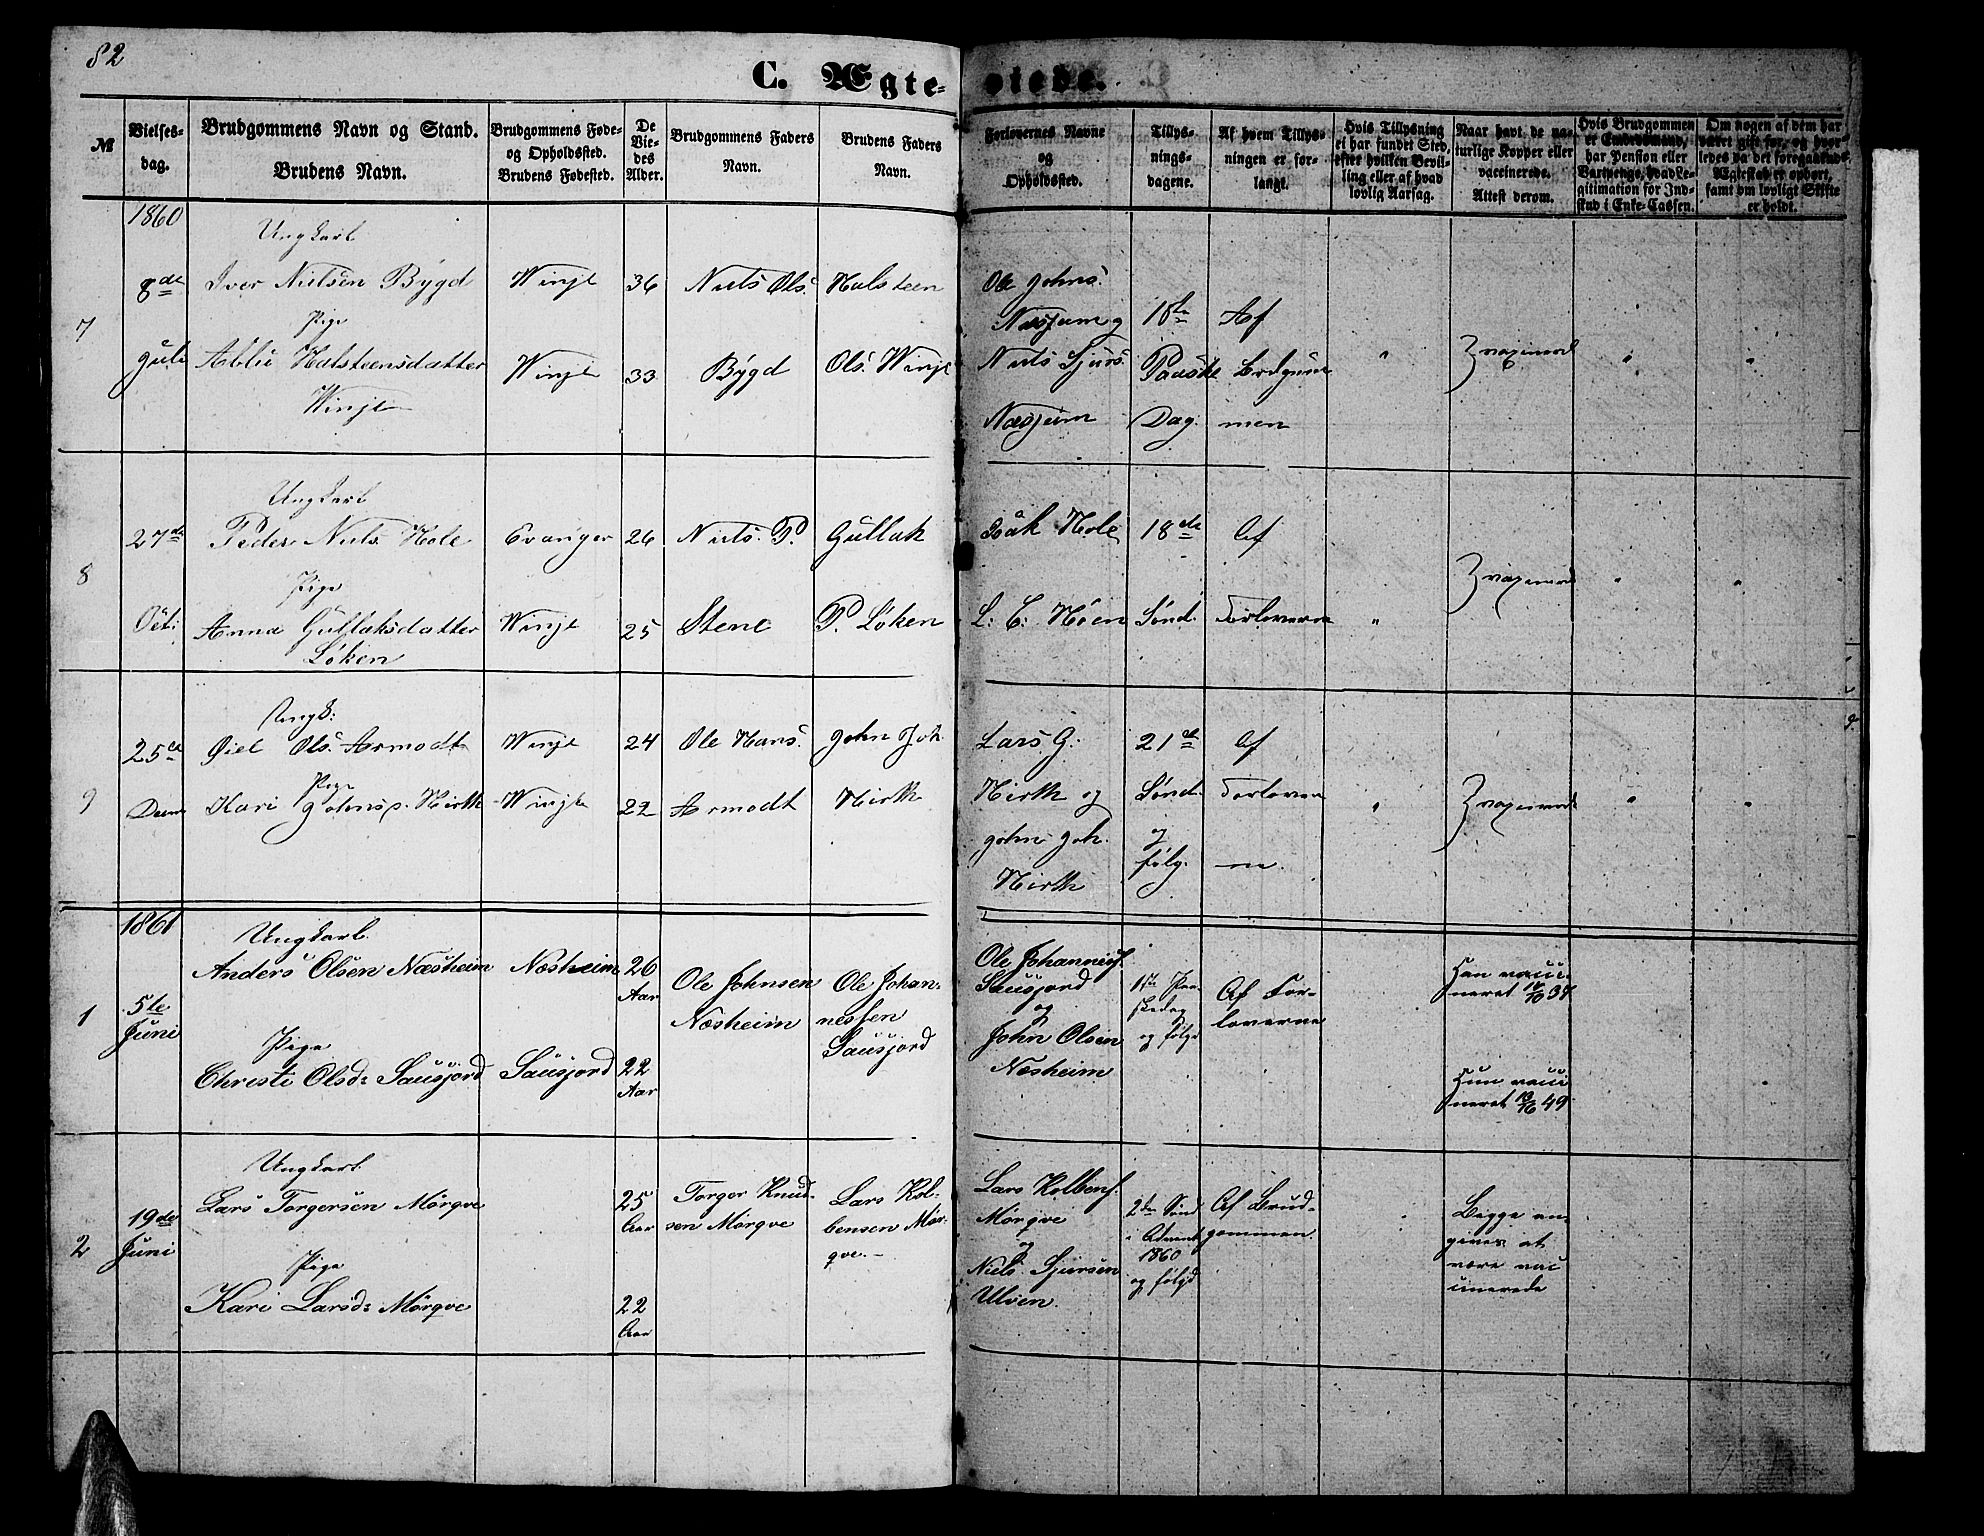 82
C. Ægte-
viede.
№
Vielses-
dag.
Brudgommens Navn og Stand.
Brudens Navn.
Brudgommens Føde-
og Opholdssted.
Brudens Fødested.
De
Vie-
des
Alder.
Brudgommens Faders
Navn.
Brudens Faders
Navn.
Forlovernes Navne
og
Opholdssted.
Tillys-
nings-
dagene.
Af hvem Tillys-
ningen er for-
langt.
Hvis Tillysning
ei har fundet Sted,
efter hvilken Bevil-
ling eller af hvad
lovlig Aarsag.
Naar havt de na-
turlige Kopper eller
vaccinerede.
Attest derom.
Hvis Brudgommen
er Embedsmand,
har Pension eller
Vartpenge, hvad Le-
gitimation for Ind-
skud i Enke-Cassen.
Om nogen af dem har
været gift før, og hvor-
ledes da det foregaaende
Ægteskab er ophørt,
samt om lovligt Skifte
er holdt.
1860
7
8de
Juli
Ungkarl
Iver Nielsen Bÿgd
Pige
Halsteensdatter
Winje
Winje
Winje
36
33
Niels Ols.
Bÿgd
Halsteen
Ols. Winje
Ole Johns.
Niels Sjurs.
Næsjum
Paaske
Dag.
Af
men
8
27de
Oct:
Ungkarl
Peder Niels. Hole
Pige
Anna Gullaksdatter
Løken
Evanger
Winje
26
25
Niels. P.
Stene
Gullak
P. Løken
Isak Hole
18de
Sønd.
Af
Forloverne
9
25de
Decm
Ungk:
Ols. Armodt
Pige
Kari Johnsd. Hirth
Winje
Winje
24
22
Ole Hans.
Armodt
John Joh.
Hirth
Lars G.
Hirth og
John Joh.
Hirth
21de
Sønd.
og
følg.
Af
Forlover
ne
1861
1
5te
Juni
Ungkarl.
Anders Olsen Næsheim
Pige
Christi Olsd: Sausjord
Næsheim
Sausjord
26
Aar
22
Aar
Ole Johnsen
Næsheim
Ole Johan-
nessen
Sausjord
Ole Johanness.
Sausjord
og
John Olsen
Næsheim
1ste Paa-
skedag
og følgd
Af For-
loverne
Han vacci-
neret
Hun vacci
neret 49
2
19de
Juni
Ungkarl
Lars Torgersen Mørqve
Pige
Kari Larsd: Mørqve
25
Aar
22
Aar
Torger Knud-
sen Mørqve
Lars Kol-
bensen Mør-
qve.-
Lars Kolbens.
Mørqve
og
Niels Sjursen
Ulven.
2den Sønd
i Advent
1860
og følgd
Af Brud-
gommen.
Begge an-
gives at
være vac
cinerede